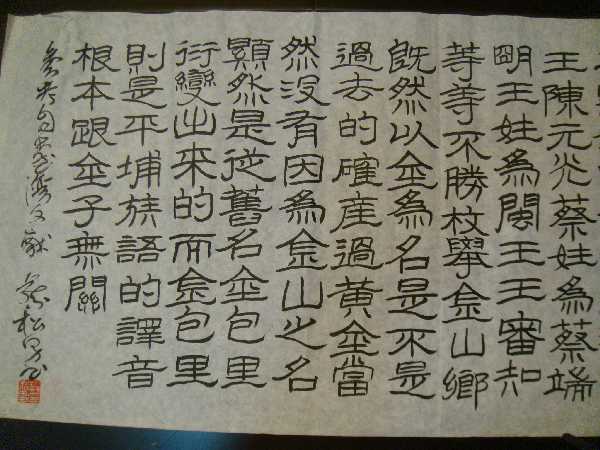 王陳元光蔡姓為蔡端
明王姓為閩王王審知
等等不勝枚舉金山鄉
既然以金為名是不是
過去的確產過黃金當
然沒有因為金山之名
顯然是從舊名金包里
衍變出來的而金包里
則是平埔族語的譯音
根本跟金子無關
參考自臺灣文獻 松